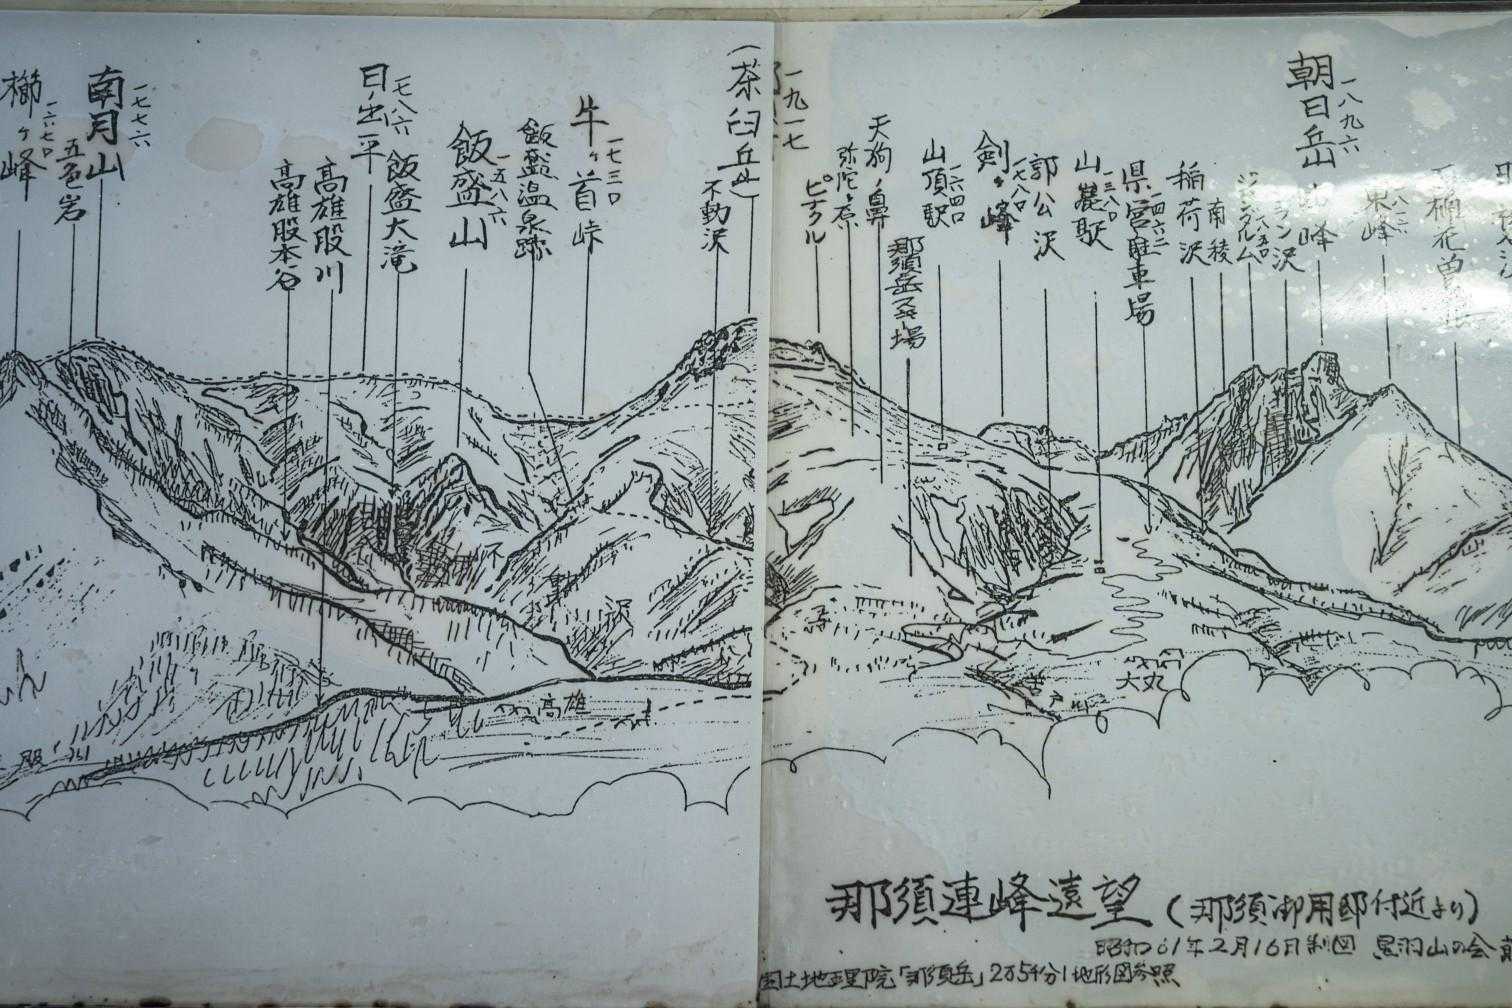 櫛ヶ峰
一六七〇
五色岩
南月山
一七七六
高雄股本谷
高雄股川
日ノ出平
一七八六
飯盛大滝
飯盛山
一五八六
飯盛温泉跡
牛ヶ首峠
一七三〇
不動沢
(茶臼岳)
一九一七
ピナクル
弥陀ヶ原
天狗ノ鼻
那須岳スキー場
山頂駅
一六四〇
剣ヶ峰
一七八〇
郭公沢
山麓駅
一三八〇
県営駐車場
一四六二
稲荷沢
南稜
朝日岳
一八九六
東峰
不動沢
高雄
大丸
股川
那須連峰遠望(那須御用邸付近より)
昭和61年2月16日制図 黒羽山の会
国土地理院「那須岳」2万5千分1地形図参照